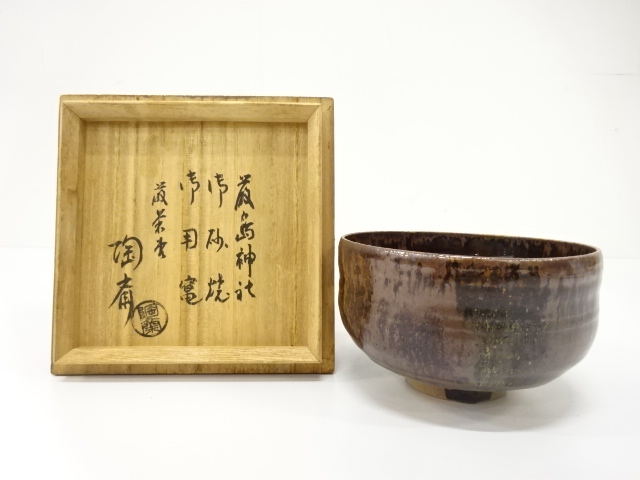 厳島神社
御砂焼
御用窯
厳茶堂
陶斎